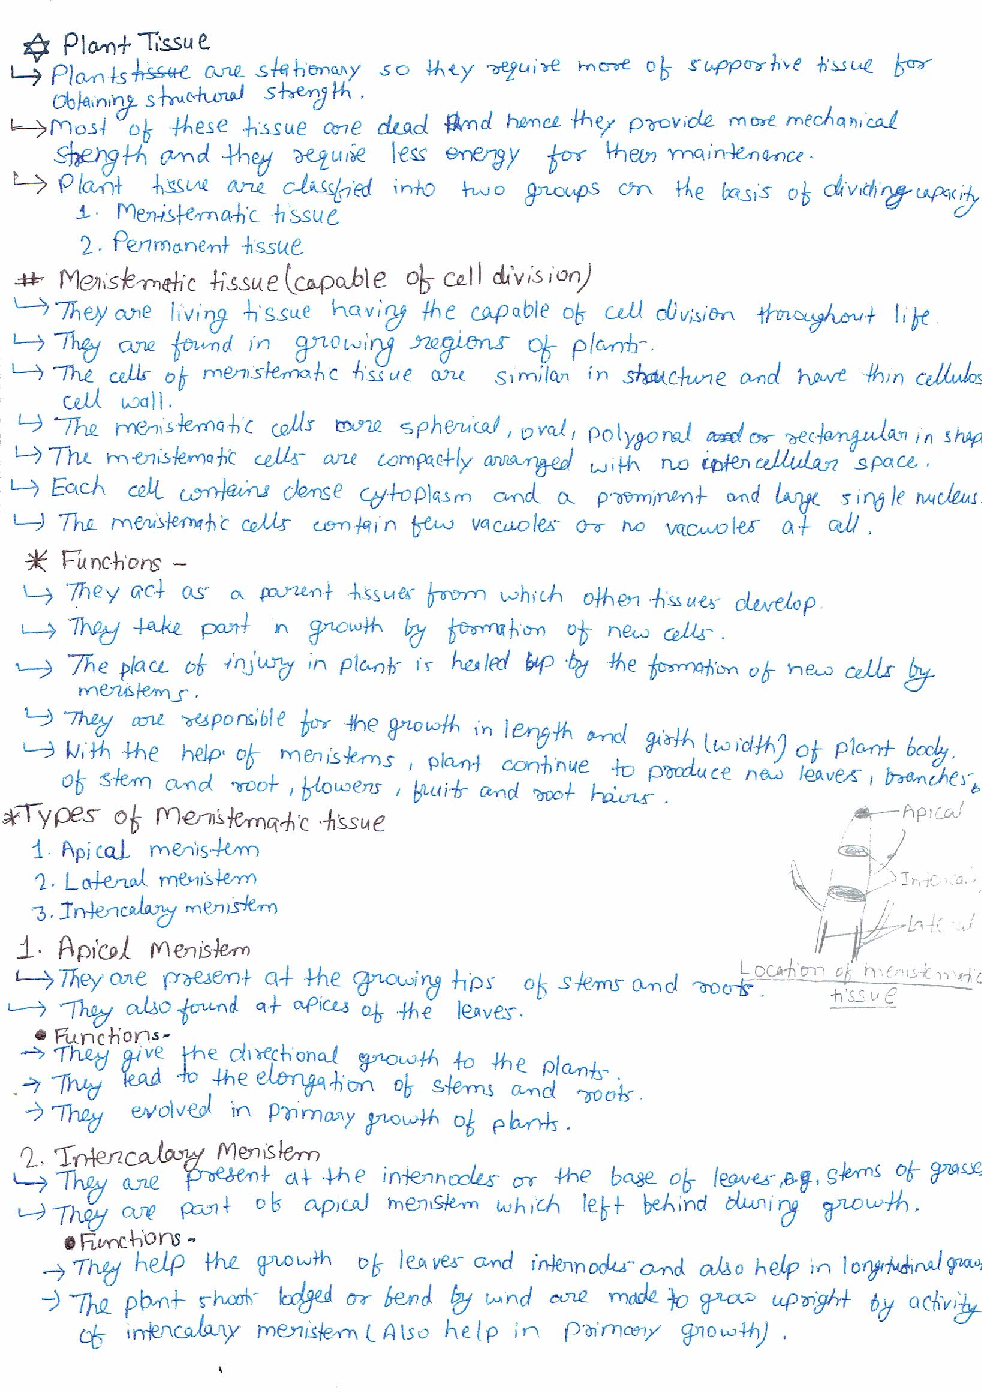 ✡ Plant Tissue
↳ Plants tissue are stationary so they require more of supportive tissue for
obtaining structural strength.
↳ Most of these tissue are dead And hence they provide more mechanical
strength and they require less energy for their maintenance.
↳ Plant tissue are classfied into two groups on the basis of dividing capacity
1. Meristematic tissue
2. Permanent tissue
# Meristematic tissue (capable of cell division)
↳ They are living tissue having the capable of cell division throughout life.
↳ They are found in growing regions of plants.
↳ The cells of meristematic tissue are similar in structure and have thin cellulos
cell wall.
↳ The meristematic cells are spherical, oval, polygonal or rectangular in shap
↳ The meristematic cells are compactly arranged with no intercellular space.
↳ Each cell contains dense cytoplasm and a prominent and large single nucleus.
↳ The meristematic cells contain few vacuoles or no vacuoles at all.
* Functions -
↳ They act as a parent tissues from which other tissues develop.
↳ They take part n growth by formation of new cells.
↳ The place of injury in plants is healed up by the formation of new cells by
meristems.
↳ They are responsible for the growth in length and girth (width) of plant body.
↳ With the help of meristems, plant continue to produce new leaves, branches
of stem and root, flowers, fruits and root hairs.
*Types of Meristematic tissue
1. Apical meristem
2. Lateral meristem
3. Intercalary meristem
Apical
Intercal
Lateral
Location of meristematic
tissue
1. Apical Meristem
↳ They are present at the growing tips of stems and roots.
↳ They also found at apices of the leaves.
• Functions-
→ They give the directional growth to the plants.
→ They lead to the elongation of stems and roots.
→ They evolved in primary growth of plants.
2. Intercalary Meristem
↳ They are present at the internodes or the base of leaves, e.g, stems of grasse
↳ They are part of apical meristem which left behind during growth.
• Functions -
→ They help the growth of leaves and internodes and also help in longitudinal grow
→ The plant shoots lodged or bend by wind are made to grow upright by activity
of intercalary meristem (Also help in primary growth).